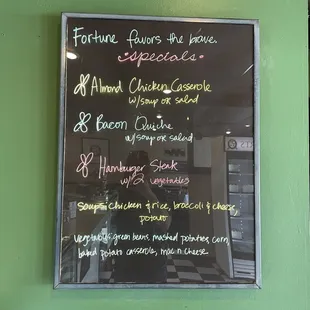 Fortune favors the brave.
specials
Almond Chicken Casserole
w/soup or salad
Bacon Quiche
w/soup or salad
Hamburger Steak
w/2 vegetables
soups: chicken & rice, broccoli & cheese,
potato
vegetables: green beans, mashed potatoes, corn,
baked potato casserole, mac n cheese.